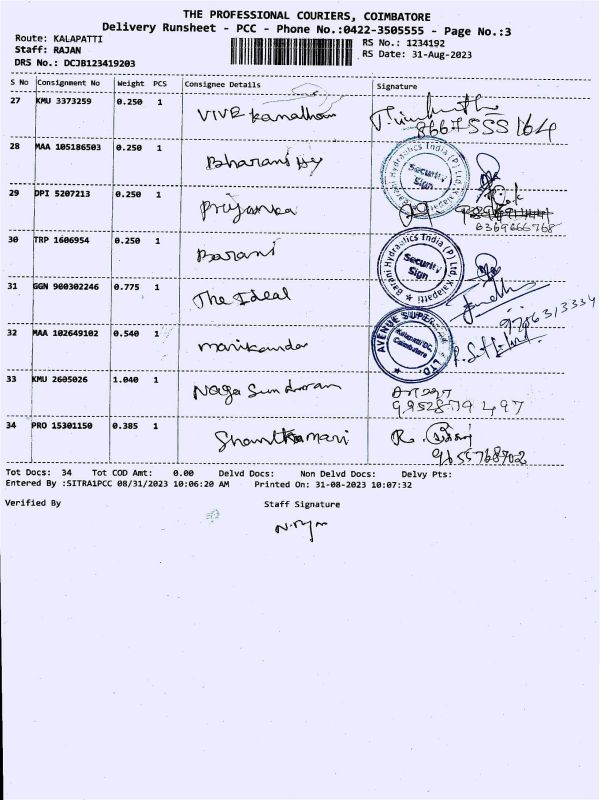 THE PROFESSIONAL COURIERS, COIMBATORE
Delivery Runsheet - PCC - Phone No.:0422-3505555 - Page No.:3
Route: KALAPATTI
RS No.: 1234192
Staff: RAJAN
RS Date: 31-Aug-2023
DRS No.: DCJB123419203
S No Consignment No Weight PCS Consignee Details Signature
27 KMU 3373259 0.250 1
8667555164
28 MAA 105186503 0.250 1
Barani Hydraulics India (P) Ltd. Kalapatti
Security
Sign
29 DPI 5207213 0.250 1 Priyanka
6369666768
30 TRP 1606954 0.250 1 Barani
Barani Hydraulics India (P) Ltd. Kalapatti
Security
Sign
31 GGN 900302246 0.775 1 The Ideal
32 MAA 102649102 0.540 1
AVENUE SUPER LTD.
Kalapatti DC,
Coimbatore
33 KMU 2605026 1.040 1 Naga Sundaram
34 PRO 15301150 0.385 1
9655768702
Tot Docs: 34 Tot COD Amt: 0.00 Delvd Docs: Non Delvd Docs: Delvy Pts:
Entered By :SITRA1PCC 08/31/2023 10:06:20 AM Printed On: 31-08-2023 10:07:32
Verified By Staff Signature